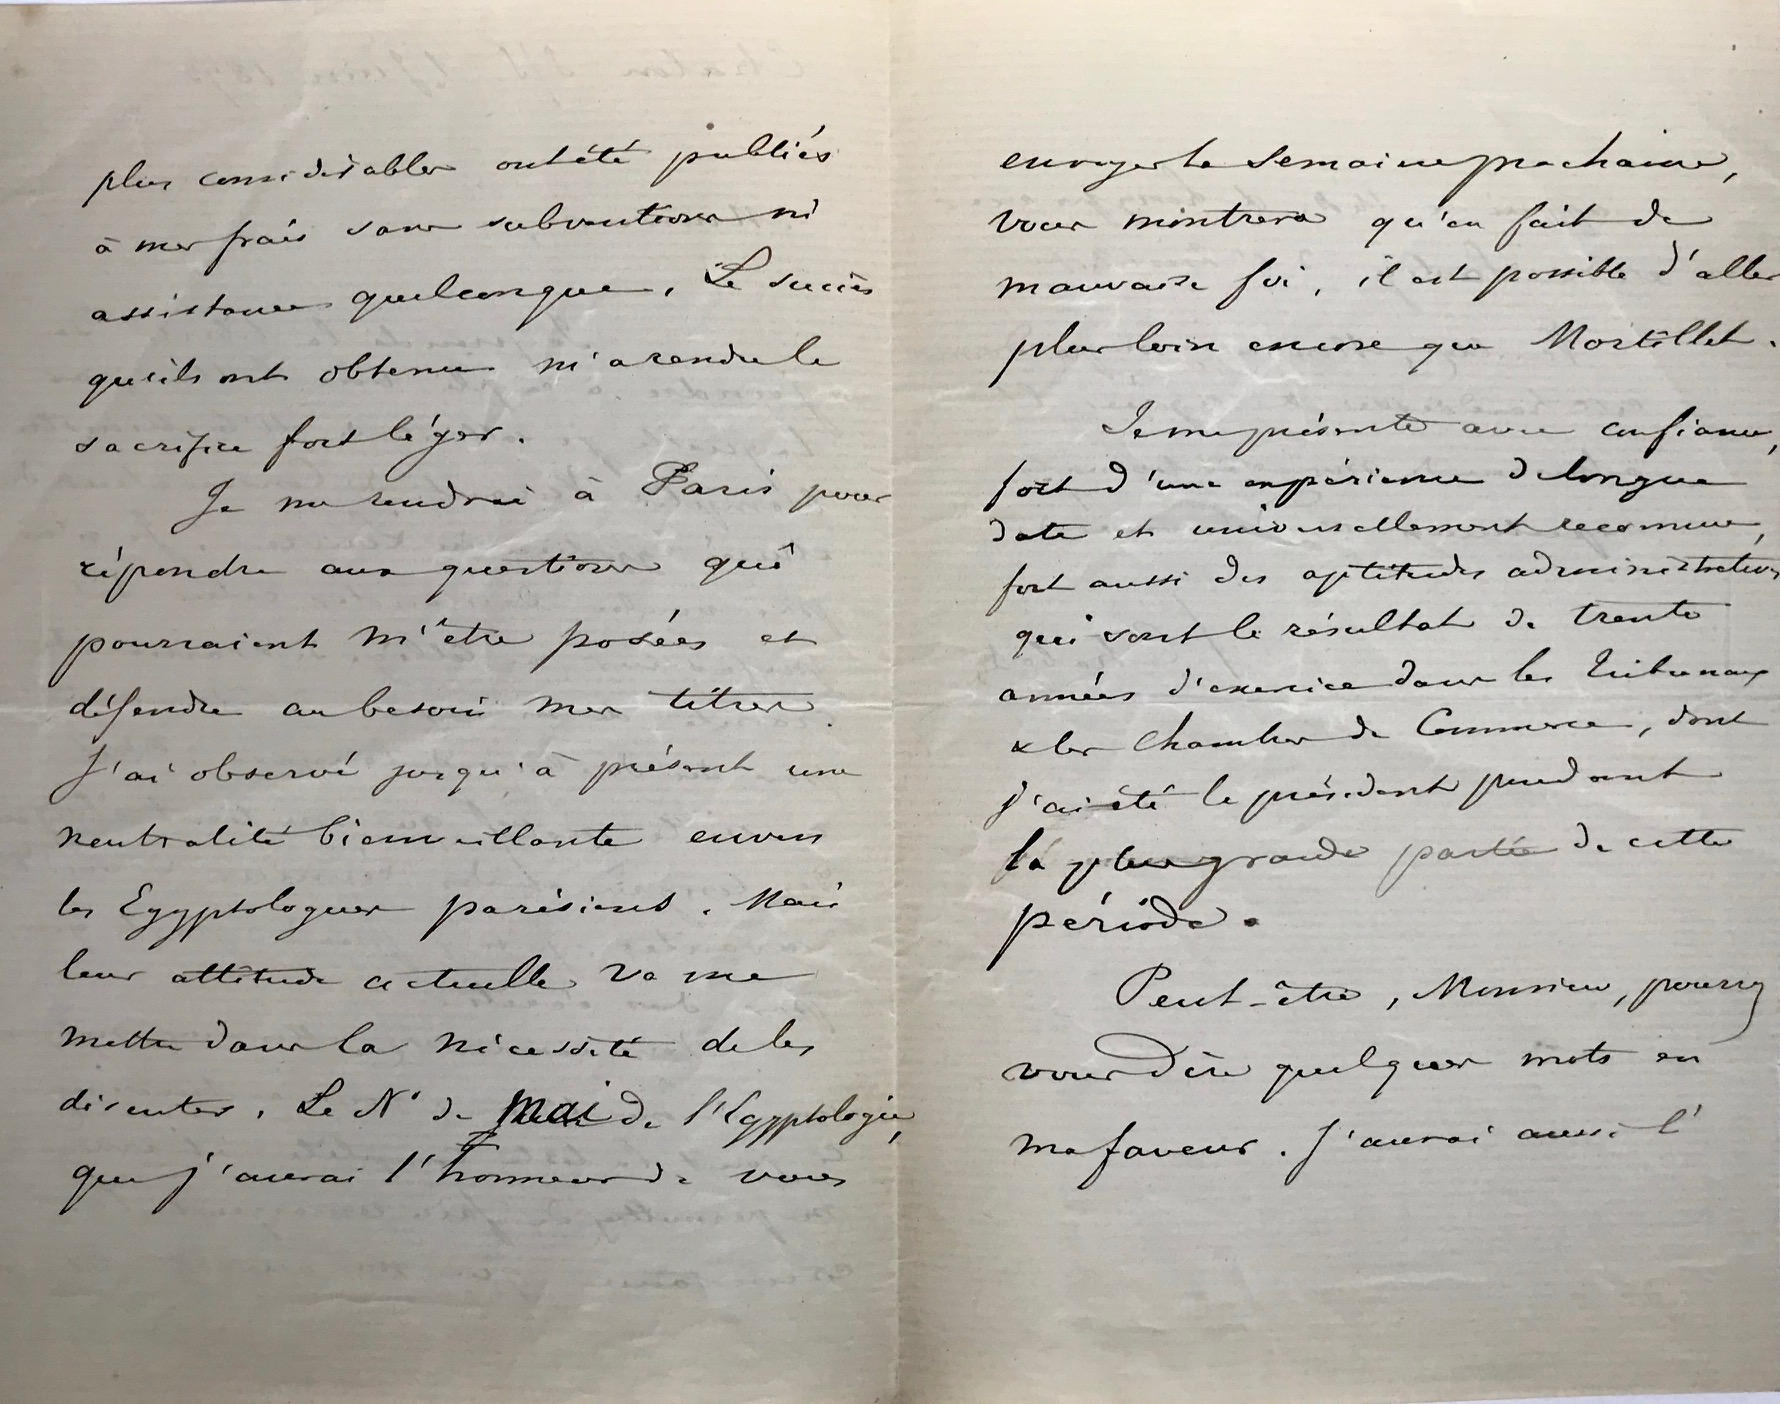 plus considérables ont été publiés
à mes frais sans subventions ni
assistance quelconque. Le succès
qu'ils ont obtenu m'a rendu le
sacrifice fort léger.
Je me rendrai à Paris pour
répondre aux questions qui
pourraient m'être posées et
défendre au besoin mes titres.
J'ai observé jusqu'à présent une
neutralité bienveillante envers
les Egyptologues parisiens. Mais
leur attitude actuelle va me
mettre dans la nécessité de les
discuter. Le N° de mai de l'Egyptologie,
que j'aurai l'honneur de vous
envoyer la semaine prochaine,
vous montrera qu'en fait de
mauvaise foi, il est possible d'aller
plus loin encore que Mortillet.
Je me présente avec confiance,
fort d'une expérience de longue
date et universellement reconnue,
fort aussi des aptitudes administratives
qui sont le résultat de trente
années d'exercice dans les Tribunaux
& les Chambres de Commerce, dont
j'ai été le président pendant
la plus grande partie de cette
période.
Peut-être, Monsieur, pourrez
vous dire quelques mots en
ma faveur. J'aurai aussi l'